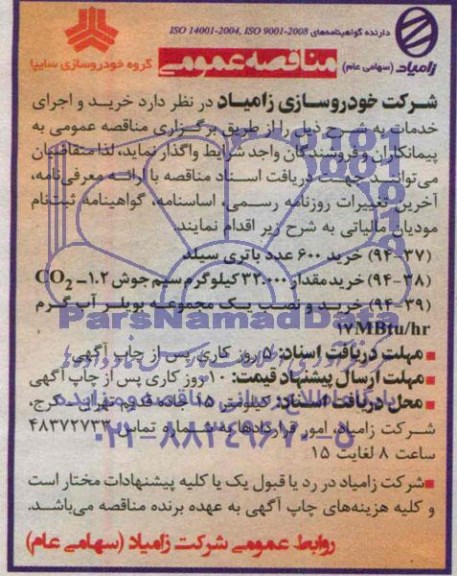 دارنده گواهینامه‌های ISO 14001-2004, ISO 9001-2008
زامیاد (سهامی عام)
مناقصه عمومی
گروه خودروسازی سایپا
شرکت خودروسازی زامیاد در نظر دارد خرید و اجرای
خدمات به شرح ذیل را از طریق برگزاری مناقصه عمومی به
پیمانکاران و فروشندگان واجد شرایط واگذار نماید، لذا متقاضیان
می‌توانند جهت دریافت اسناد مناقصه با ارائه معرفی‌نامه،
آخرین تغییرات روزنامه رسمی، اساسنامه، گواهینامه ثبت‌نام
مودیان مالیاتی به شرح زیر اقدام نمایند.
(۹۴-۳۷) خرید ۶۰۰ عدد باتری سیلد
(۹۴-۳۸) خرید مقدار ۳۲.۰۰۰ کیلوگرم سیم جوش ۱.۲ - CO2
(۹۴-۳۹) خرید و نصب یک مجموعه بویلر آب گرم
۱۷MBtu/hr
ParsNamadData
■ مهلت دریافت اسناد: ۵ روز کاری پس از چاپ آگهی
■ مهلت ارسال پیشنهاد قیمت: ۱۰ روز کاری پس از چاپ آگهی
■ محل دریافت اسناد: کیلومتر ۱۵ جاده قدیم تهران - کرج،
شرکت زامیاد، امور قراردادها به شماره تماس ۴۸۳۷۲۷۳۳
۰۲۱-۸۸۳۴۹۶۷۰-۵
ساعت ۸ لغایت ۱۵
■ شرکت زامیاد در رد یا قبول یک یا کلیه پیشنهادات مختار است
و کلیه هزینه‌های چاپ آگهی به عهده برنده مناقصه می‌باشد.
روابط عمومی شرکت زامیاد (سهامی عام)